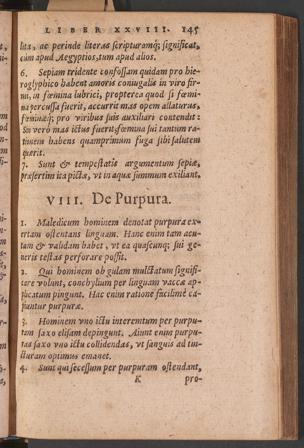 LIBER XXVIII. 145
lita, ac perinde literas scripturamq́; significat,
cum apud Aegyptios, tum apud alios.
6. Sepiam tridente confossam quidam pro hie-
roglyphico habent amoris coniugalis in viro fir-
mi, in fœmina lubrici, propterea quod si fœmi-
na percussa fuerit, accurrit mas opem allaturus,
fœminæq́; pro viribus suis auxiliari contendit:
Sin verò mas ictus fuerit, fœmina sui tantùm ra-
tionem habens quamprimum fuga sibi salutem
quærit.
7. Sunt & tempestatis argumentum sepiæ,
præsertim ita pictæ, vt in aquæ summum exiliant.
VIII. De Purpura.
1. Maledicum hominem denotat purpura ex-
ertam ostentans linguam. Hanc enim tam acu-
tam & validam habet, vt ea quascunq; sui ge-
neris testas perforare possit.
2. Qui hominem ob gulam mulctatum signifi-
care volunt, conchylium per linguam vaccæ ap-
plicatum pingunt. Hac enim ratione facilimè ca-
piuntur purpuræ.
3. Hominem vno ictu interemtum per purpu-
ram saxo elisam depingunt. Aiunt enim purpu-
ras saxo vno ictu collidendas, vt sanguis ad tin-
cturam optimus emanet.
4. Sunt qui secessum per purpuram ostendant,
K pro-